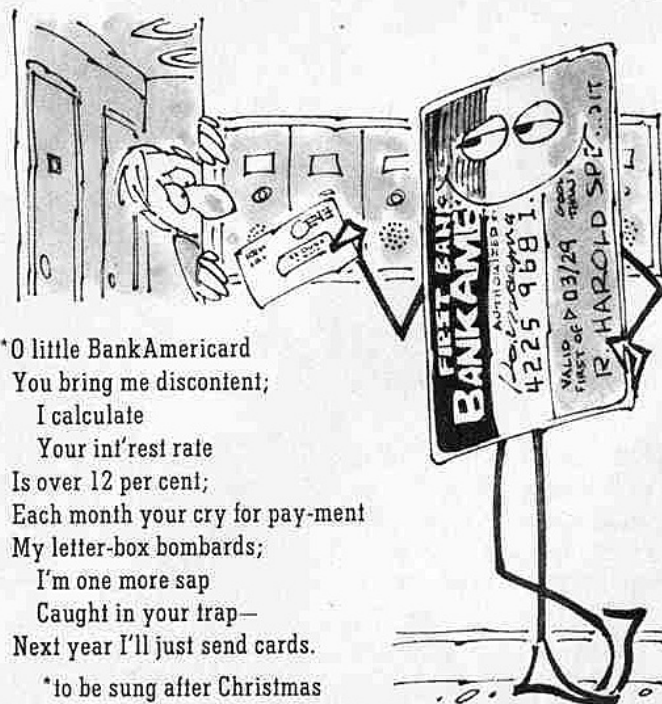 FIRST BAN
BANKAME
AUTHORIZED
4225 9681 1
VALID
FIRST OF 03/29 GOOD THRU
R. HAROLD SPE
*O little BankAmericard
You bring me discontent;
I calculate
Your int'rest rate
Is over 12 per cent;
Each month your cry for pay-ment
My letter-box bombards;
I'm one more sap
Caught in your trap—
Next year I'll just send cards.
*to be sung after Christmas